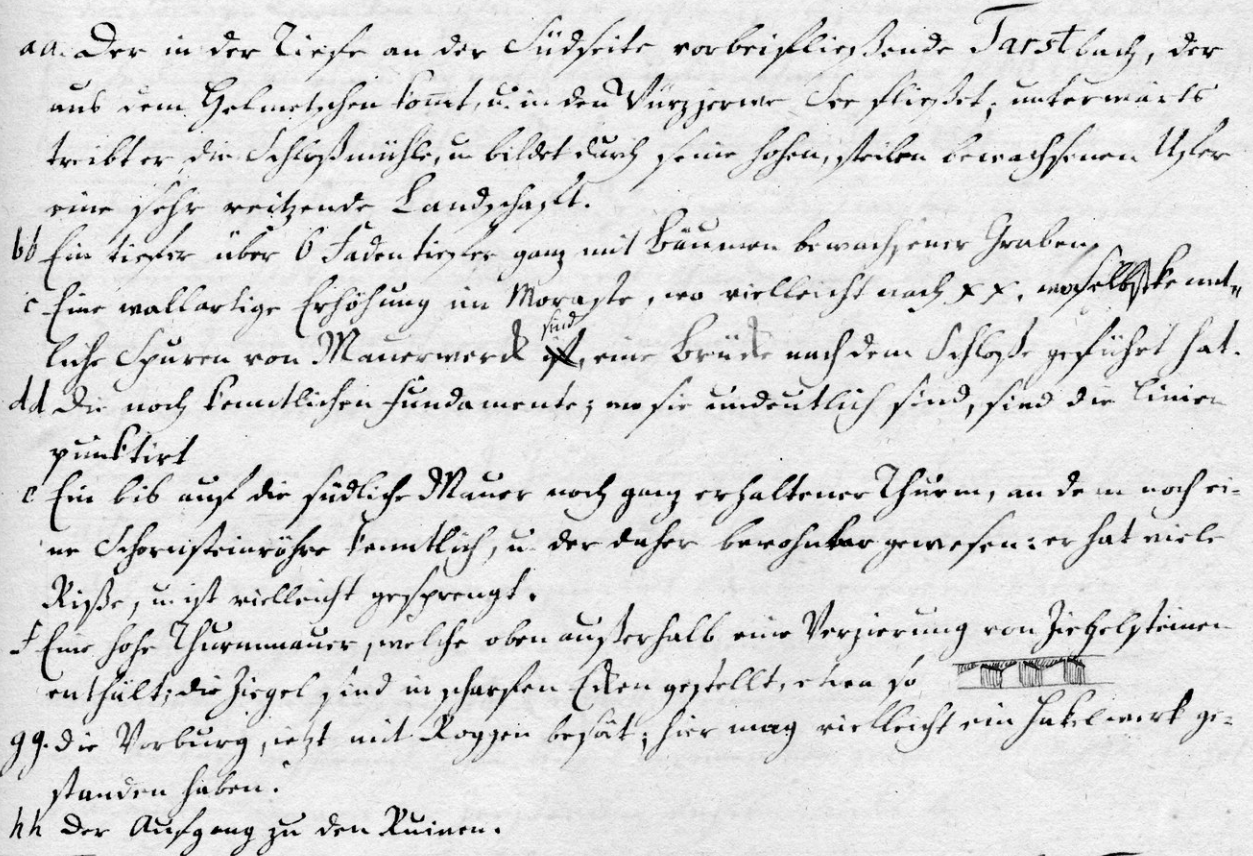 aa. Der in der Tiefe an der Südseite vorbeifließende Tarstbach, der
aus dem Helmetschen kommt, u. in den Würzjerwe See fließet; unterwärts
treibt er die Schloßmühle, u. bildet durch seine hohen, steilen bewachsenen Ufer
eine sehr reitzende Landschaft.
bb Ein tiefer über 6 Faden tiefer ganz mit Bäumen bewachsener Graben,
c Eine wallartige Erhöhung im Moraste, wo vielleicht nach x x, woselbst kennt-
liche Spuren von Mauerwerck sind, eine Brücke nach dem Schloße geführt hat.
dd Die noch kenntlichen Fundamente; wo sie undeutlich sind, sind die Linien
punktirt
e Ein bis auf die südliche Mauer noch ganz erhaltener Thurm, an dem noch ei-
ne Schornsteinröhre kenntlich, u. der daher bewohnbar gewesen: er hat viele
Riße, u. ist vielleicht gesprengt.
f Eine hohe Thurmmauer, welche oben außerhalb eine Verzierung von Ziegelsteinen
enthält; die Ziegel sind in scharfen Ecken gestellt, etwa so
gg. die Vorburg, jetzt mit Roggen besät; hier mag vielleicht ein Hakelwerk ge-
standen haben.
hh Der Aufgang zu den Ruinen.